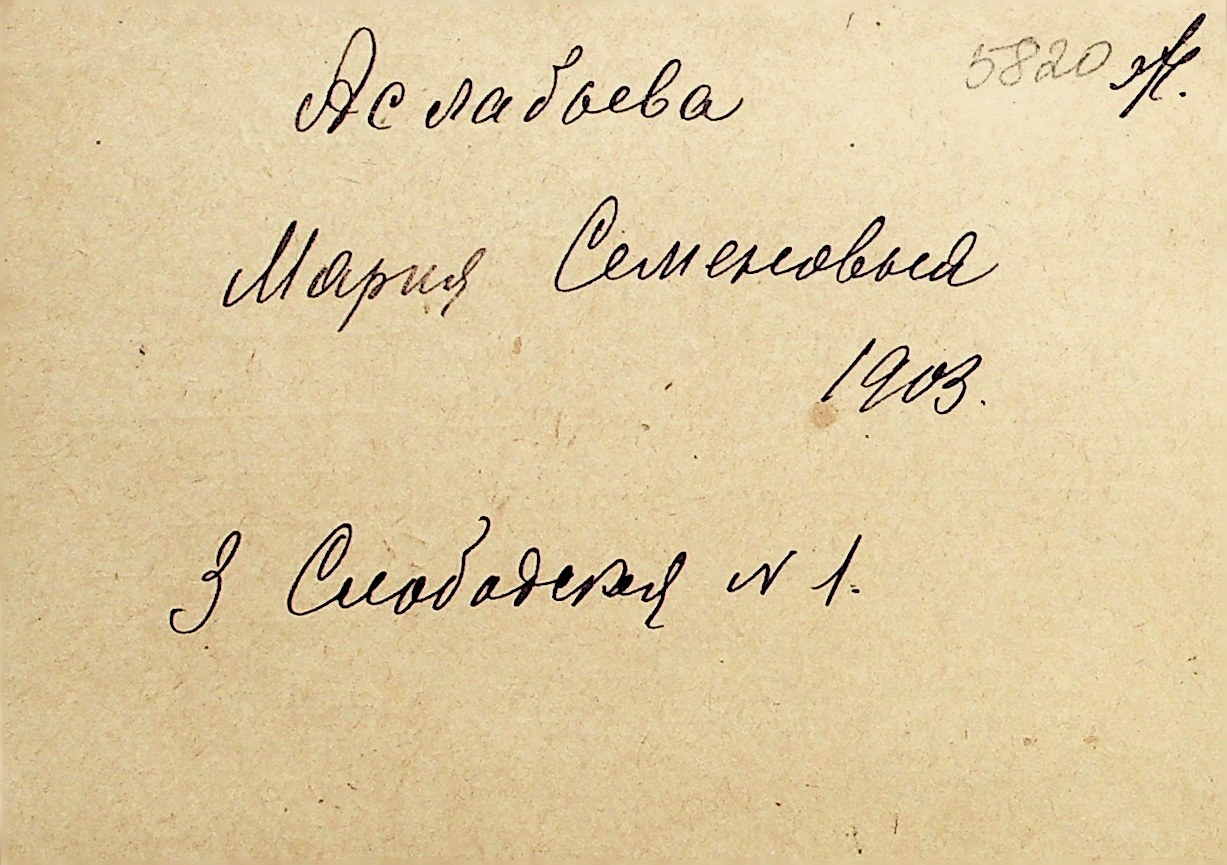 Аслабоева 5820 Ж.
Мария Семеновна
1903.
3 Слободская N 1.